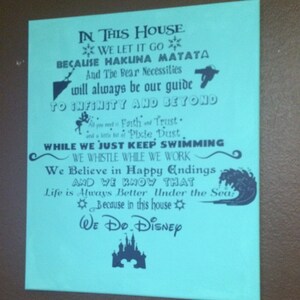 IN THIS HOUSE
WE LET IT GO
BECAUSE HAKUNA MATATA
And The Bear Necessities
will always be our guide
TO INFINITY AND BEYOND
All you need is Faith and Trust
and a little bit of Pixie Dust
WHILE WE JUST KEEP SWIMMING
WE WHISTLE WHILE WE WORK
We Believe in Happy Endings
AND WE KNOW THAT
Life is Always Better Under the Sea
Because in this house
We Do Disney